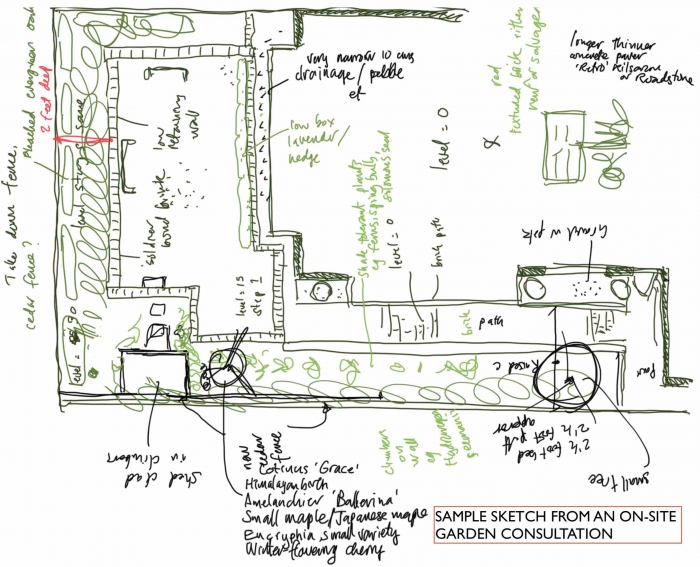 Take down fence.
cedar fence?
Pleached evergreen oak
2 feet deep
level stays same
low retaining
wall
soldier
board
very narrow 10 cms
drainage/pebble
low box
lavender/
hedge
shade tolerant plants
eg ferns, spring bulbs,
level = 0
brick path
level = 0
&
red
textured brick either
new or salvaged
longer thinner
concrete paver
'Retro' Kilsaran
or Roadstone
Gravel w pots
level = 15
step 1
level =
brick
path
Raised
shed clad
in climbers
new
cedar
fence
Cotinus 'Grace'
Himalayan birch
Amelanchier 'Ballerina'
Small maple/Japanese maple
Eucryphia, small variety
Winter flowering cherry
climbers
on
wall
eg
Hydrangea
2 1/2 foot bed
2 1/2 foot
small tree
SAMPLE SKETCH FROM AN ON-SITE
GARDEN CONSULTATION